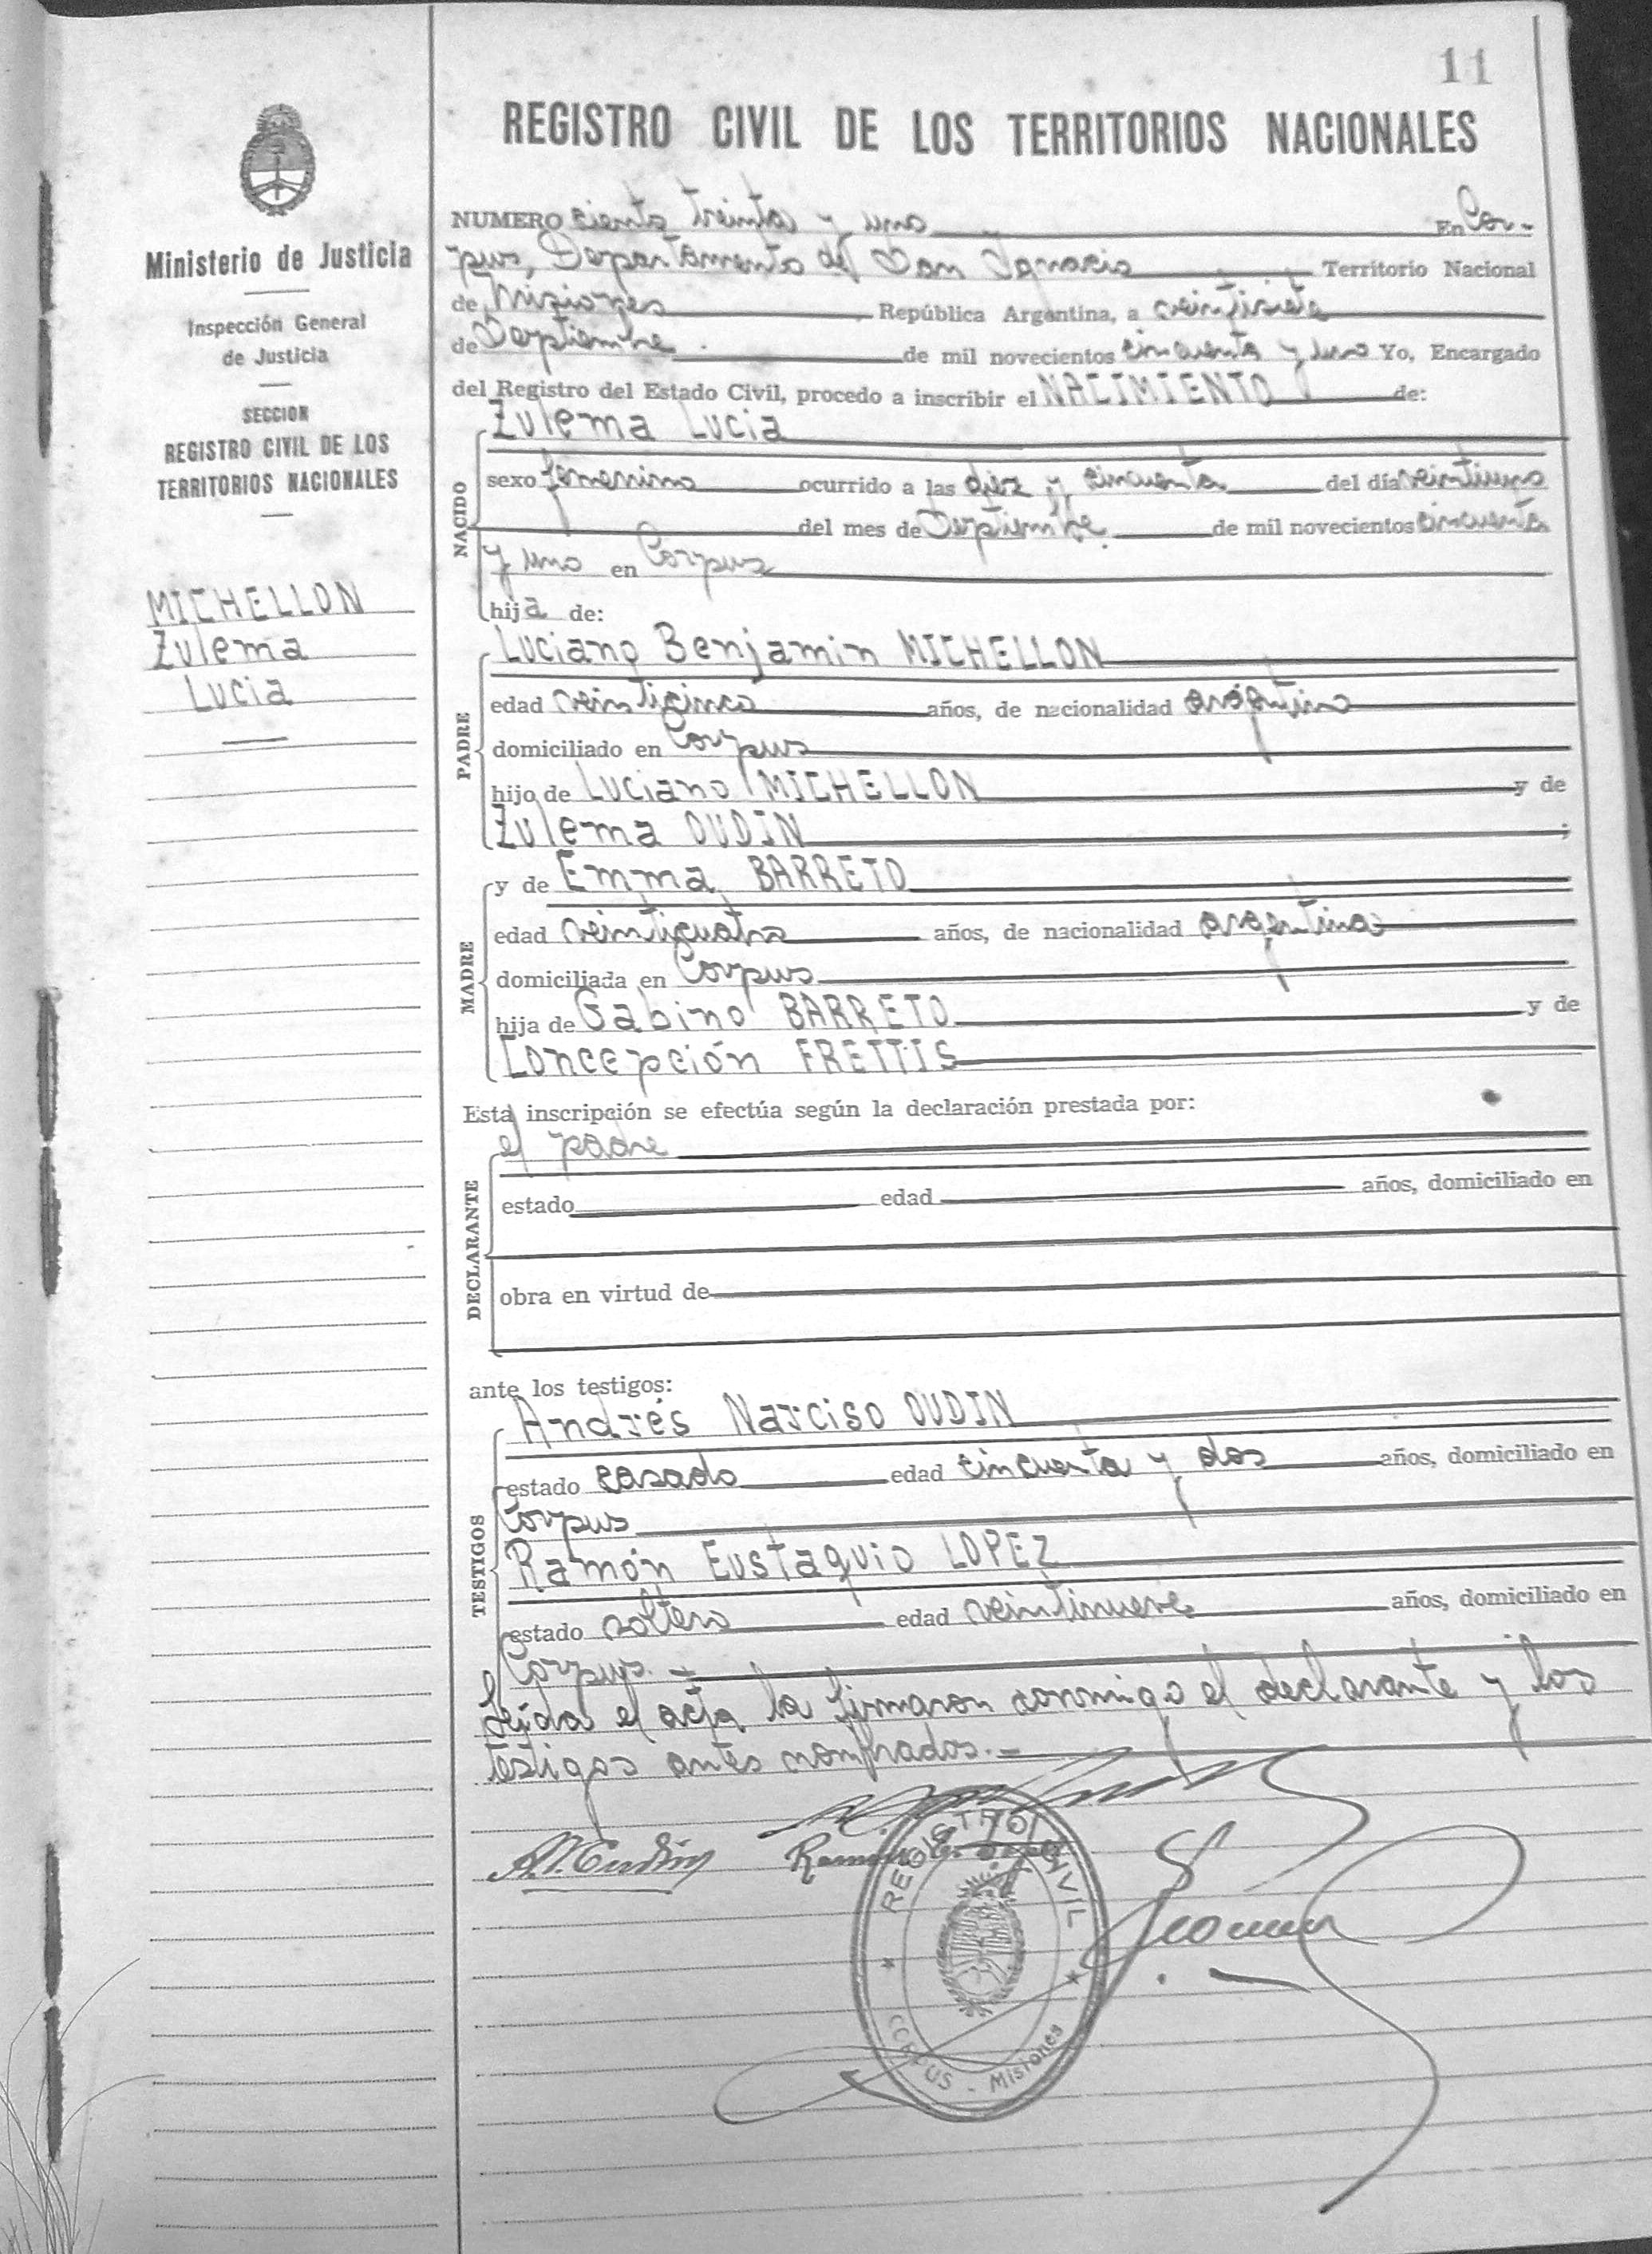 11
REGISTRO CIVIL DE LOS TERRITORIOS NACIONALES
Ministerio de Justicia
Inspección General
de Justicia
SECCION
REGISTRO CIVIL DE LOS
TERRITORIOS NACIONALES
MICHELLON
Zulema
Lucia
NUMERO ciento treinta y uno En Cor-
pus, Departamento de San Ignacio Territorio Nacional
de Misiones República Argentina, a veintisiete
de Septiembre. de mil novecientos cincuenta y uno Yo, Encargado
del Registro del Estado Civil, procedo a inscribir el NACIMIENTO de:
NACIDO
Zulema Lucia
sexo femenino ocurrido a las diez y cincuenta del día veintiuno
del mes de Septiembre. de mil novecientos cincuenta
y uno en Corpus
hija de:
PADRE
Luciano Benjamin MICHELLON
edad veinticinco años, de nacionalidad argentino
domiciliado en Corpus
hijo de Luciano MICHELLON y de
Zulema OUDIN ;
MADRE
y de Emma BARRETO
edad veinticuatro años, de nacionalidad argentina
domiciliada en Corpus
hija de Gabino BARRETO y de
Concepción FRETTIS
Esta inscripción se efectúa según la declaración prestada por:
DECLARANTE
el padre
estado edad años, domiciliado en
obra en virtud de
ante los testigos:
TESTIGOS
Andrés Narciso OUDIN
estado casado edad cincuenta y dos años, domiciliado en
Corpus
Ramón Eustaquio LOPEZ
estado soltero edad veintinueve años, domiciliado en
Corpus.-
Leída el acta la firmaron conmigo el declarante y los
testigos antes nombrados.-
A. N. Oudin
REGISTRO CIVIL
CORPUS - Misiones